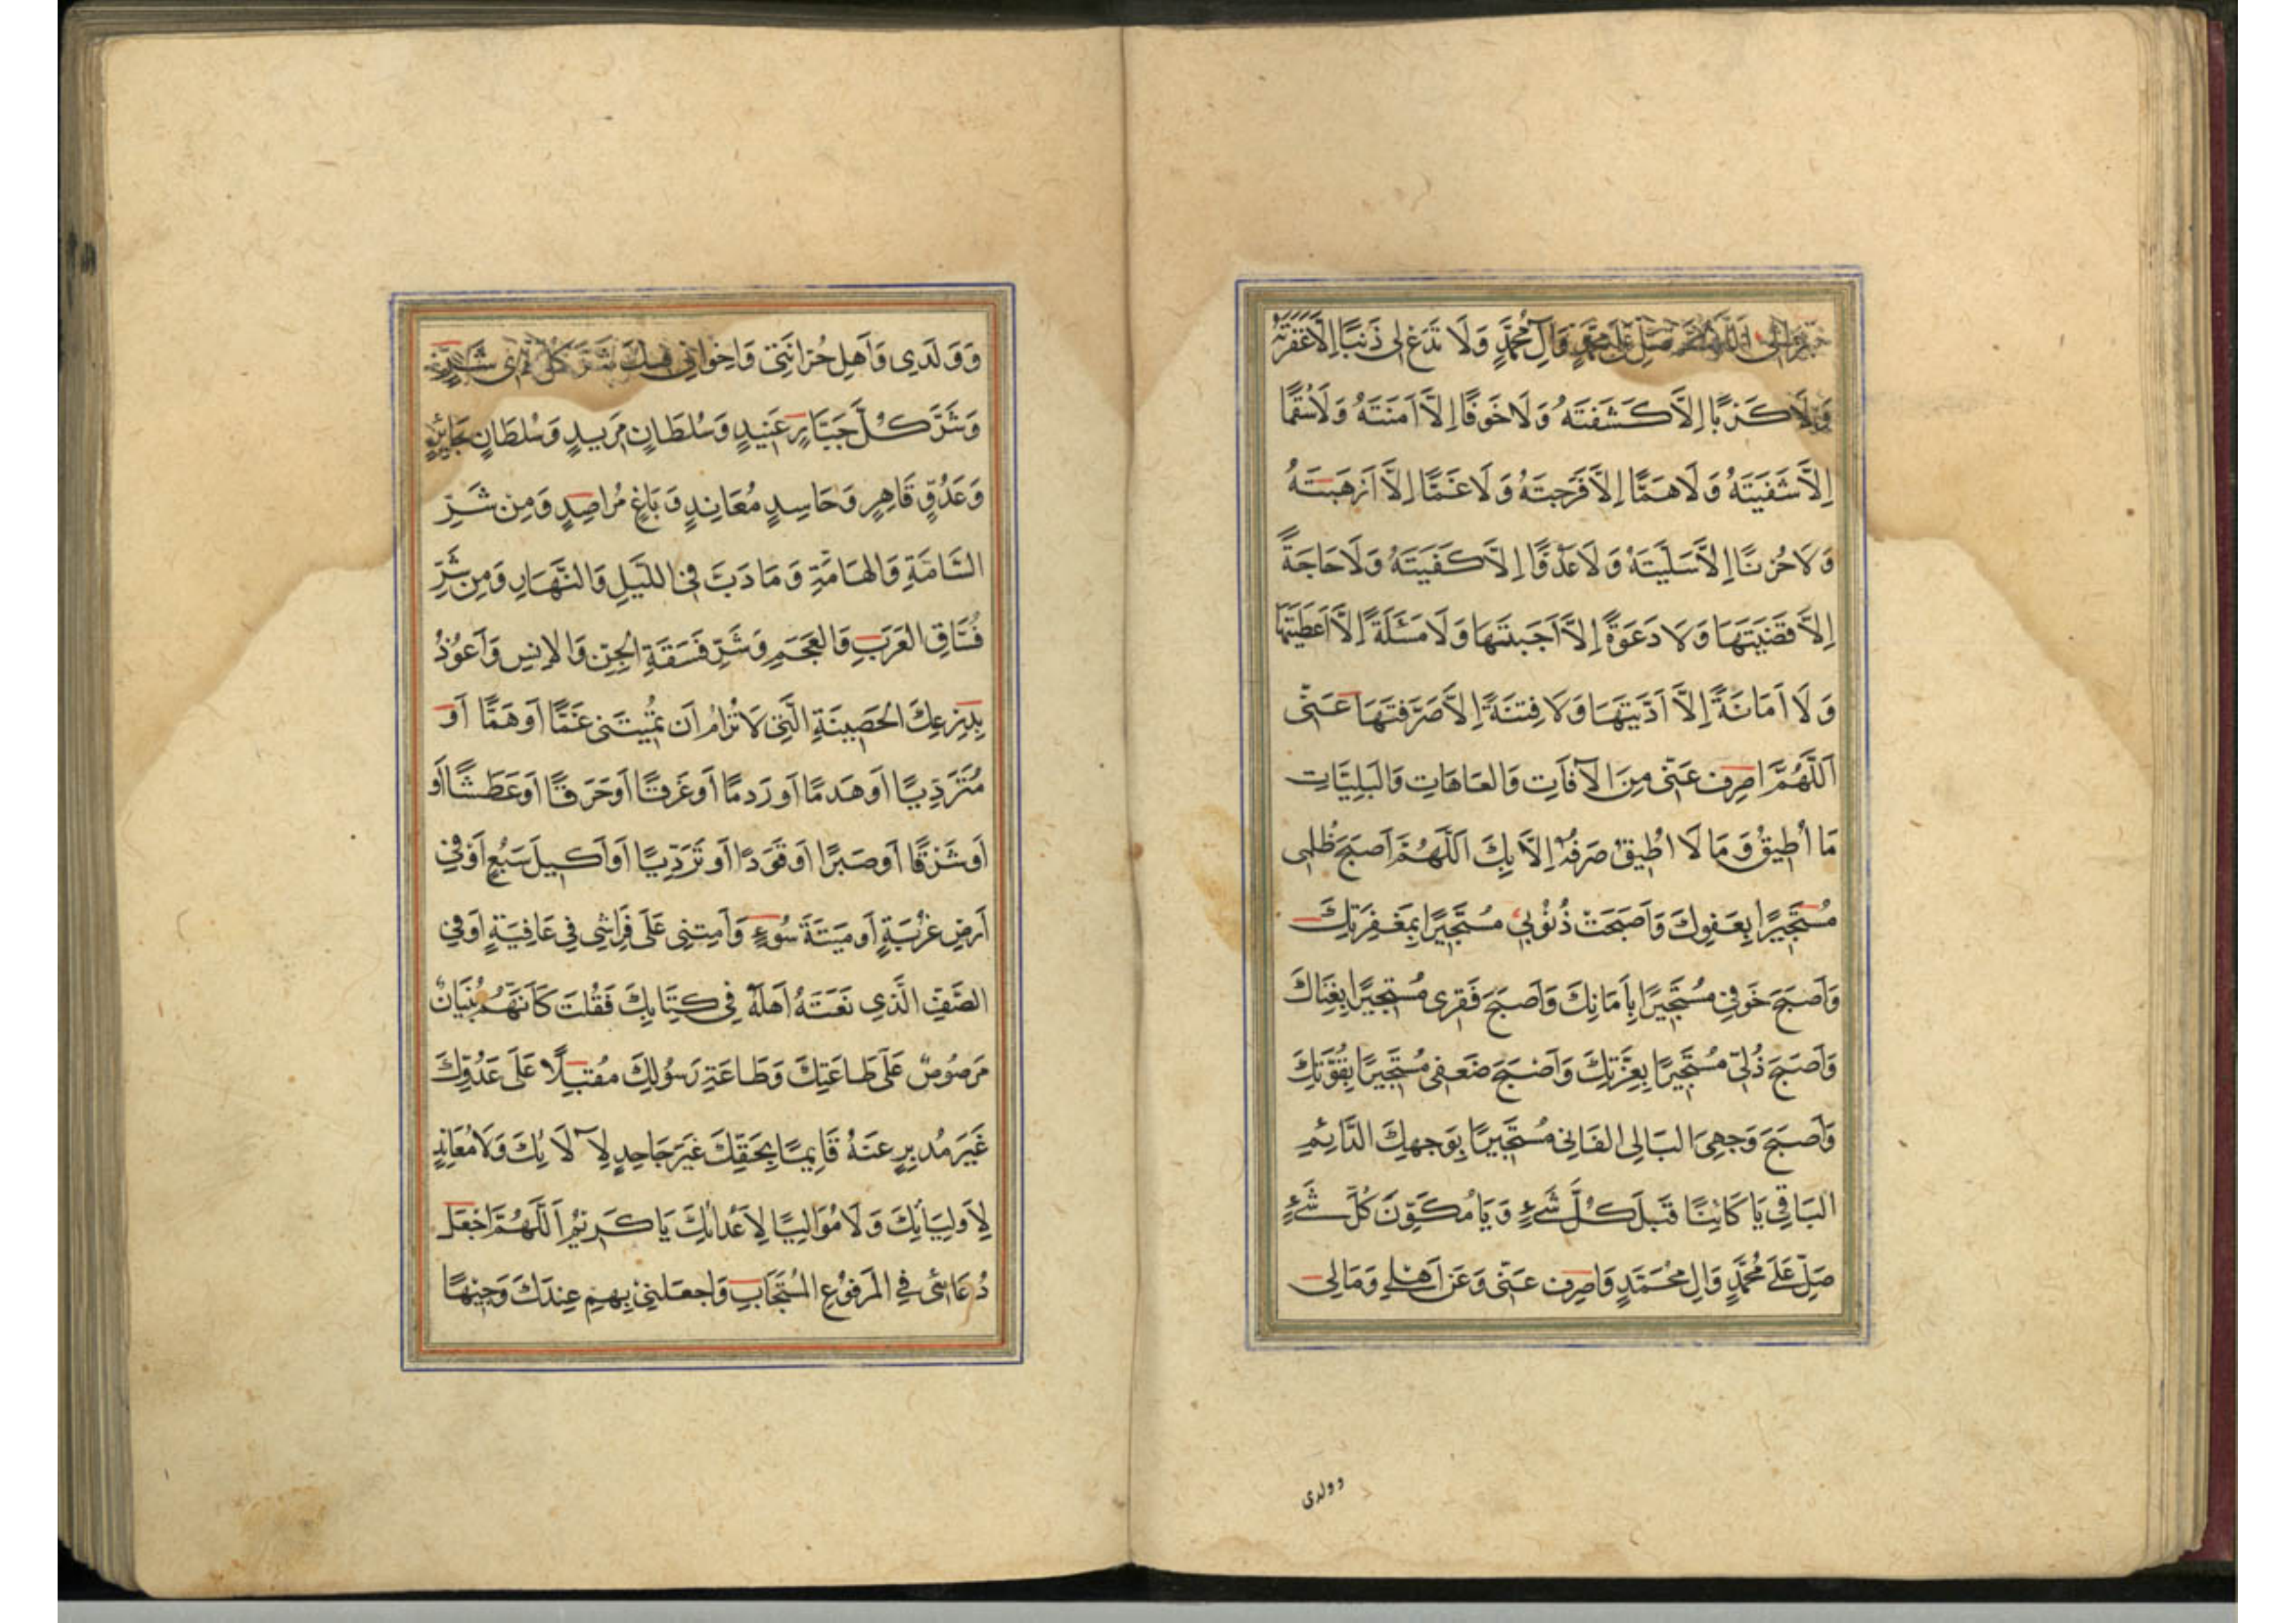 اَللّٰهُمَّ صَلِّ عَلٰى مُحَمَّدٍ وَآلِ مُحَمَّدٍ وَلَا تَدَعْ لِى ذَنْبًا اِلَّا غَفَرْتَهُ
وَلَا كَرْبًا اِلَّا كَشَفْتَهُ وَلَا خَوْفًا اِلَّا آمَنْتَهُ وَلَا سُقْمًا
اِلَّا شَفَيْتَهُ وَلَا هَمًّا اِلَّا فَرَّجْتَهُ وَلَا غَمًّا اِلَّا اَذْهَبْتَهُ
وَلَا حُزْنًا اِلَّا سَلَّيْتَهُ وَلَا عَدُوًّا اِلَّا كَفَيْتَهُ وَلَا حَاجَةً
اِلَّا قَضَيْتَهَا وَلَا دَعْوَةً اِلَّا اَجَبْتَهَا وَلَا مَسْئَلَةً اِلَّا اَعْطَيْتَهَا
وَلَا اَمَانَةً اِلَّا اَدَّيْتَهَا وَلَا فِتْنَةً اِلَّا صَرَفْتَهَا عَنِّى
اَللّٰهُمَّ اصْرِفْ عَنِّى مِنَ الْآفَاتِ وَالْعَاهَاتِ وَالْبَلِيَّاتِ
مَا اُطِيقُ وَمَا لَا اُطِيقُ صَرْفَهُ اِلَّا بِكَ اَللّٰهُمَّ اَصْبَحَ ظُلْمِى
مُسْتَجِيرًا بِعَفْوِكَ وَاَصْبَحَتْ ذُنُوبِى مُسْتَجِيرًا بِمَغْفِرَتِكَ
وَاَصْبَحَ خَوْفِى مُسْتَجِيرًا بِاَمَانِكَ وَاَصْبَحَ فَقْرِى مُسْتَجِيرًا بِغِنَاكَ
وَاَصْبَحَ ذُلِّى مُسْتَجِيرًا بِعِزَّتِكَ وَاَصْبَحَ ضَعْفِى مُسْتَجِيرًا بِقُوَّتِكَ
وَاَصْبَحَ وَجْهِىَ الْبَالِى الْفَانِى مُسْتَجِيرًا بِوَجْهِكَ الدَّائِمِ
الْبَاقِى يَا كَائِنًا قَبْلَ كُلِّ شَىْءٍ وَيَا مُكَوِّنَ كُلِّ شَىْءٍ
صَلِّ عَلٰى مُحَمَّدٍ وَآلِ مُحَمَّدٍ وَاصْرِفْ عَنِّى وَعَنْ اَهْلِى وَمَالِى
وولدى
وَوَلَدِى وَاَهْلِ حُزَانَتِى وَاِخْوَانِى فِيكَ شَرَّ كُلِّ ذِى شَرٍّ
وَشَرَّ كُلِّ جَبَّارٍ عَنِيدٍ وَسُلْطَانٍ مَرِيدٍ وَسُلْطَانٍ جَائِرٍ
وَعَدُوٍّ قَاهِرٍ وَحَاسِدٍ مُعَانِدٍ وَبَاغٍ مُرَاصِدٍ وَمِنْ شَرِّ
السَّامَّةِ وَالْهَامَّةِ وَمَا دَبَّ فِى اللَّيْلِ وَالنَّهَارِ وَمِنْ شَرِّ
فُسَّاقِ الْعَرَبِ وَالْعَجَمِ وَشَرِّ فَسَقَةِ الْجِنِّ وَالْاِنْسِ وَاَعُوذُ
بِدِرْعِكَ الْحَصِينَةِ الَّتِى لَا تُرَامُ اَنْ تُمِيتَنِى غَمًّا اَوْ هَمًّا اَوْ
مُتَرَدِّيًا اَوْ هَدْمًا اَوْ رَدْمًا اَوْ غَرَقًا اَوْ حَرَقًا اَوْ عَطَشًا اَوْ
اَوْ شَرَقًا اَوْ صَبْرًا اَوْ قَوَدًا اَوْ تَرَدِّيًا اَوْ اَكِيلَ سَبُعٍ اَوْ فِى
اَرْضِ غُرْبَةٍ اَوْ مِيتَةَ سُوءٍ وَاَمِتْنِى عَلٰى فِرَاشِى فِى عَافِيَةٍ اَوْ فِى
الصَّفِّ الَّذِى نَعَتَّ اَهْلَهُ فِى كِتَابِكَ فَقُلْتَ كَاَنَّهُمْ بُنْيَانٌ
مَرْصُوصٌ عَلٰى طَاعَتِكَ وَطَاعَةِ رَسُولِكَ مُقْبِلًا عَلٰى عَدُوِّكَ
غَيْرَ مُدْبِرٍ عَنْهُ قَائِمًا بِحَقِّكَ غَيْرَ جَاحِدٍ لِآلَائِكَ وَلَا مُعَانِدٍ
لِاَوْلِيَائِكَ وَلَا مُوَالِيًا لِاَعْدَائِكَ يَا كَرِيمُ اَللّٰهُمَّ اجْعَلْ
دُعَائِى فِى الْمَرْفُوعِ الْمُسْتَجَابِ وَاجْعَلْنِى بِهِمْ عِنْدَكَ وَجِيهًا